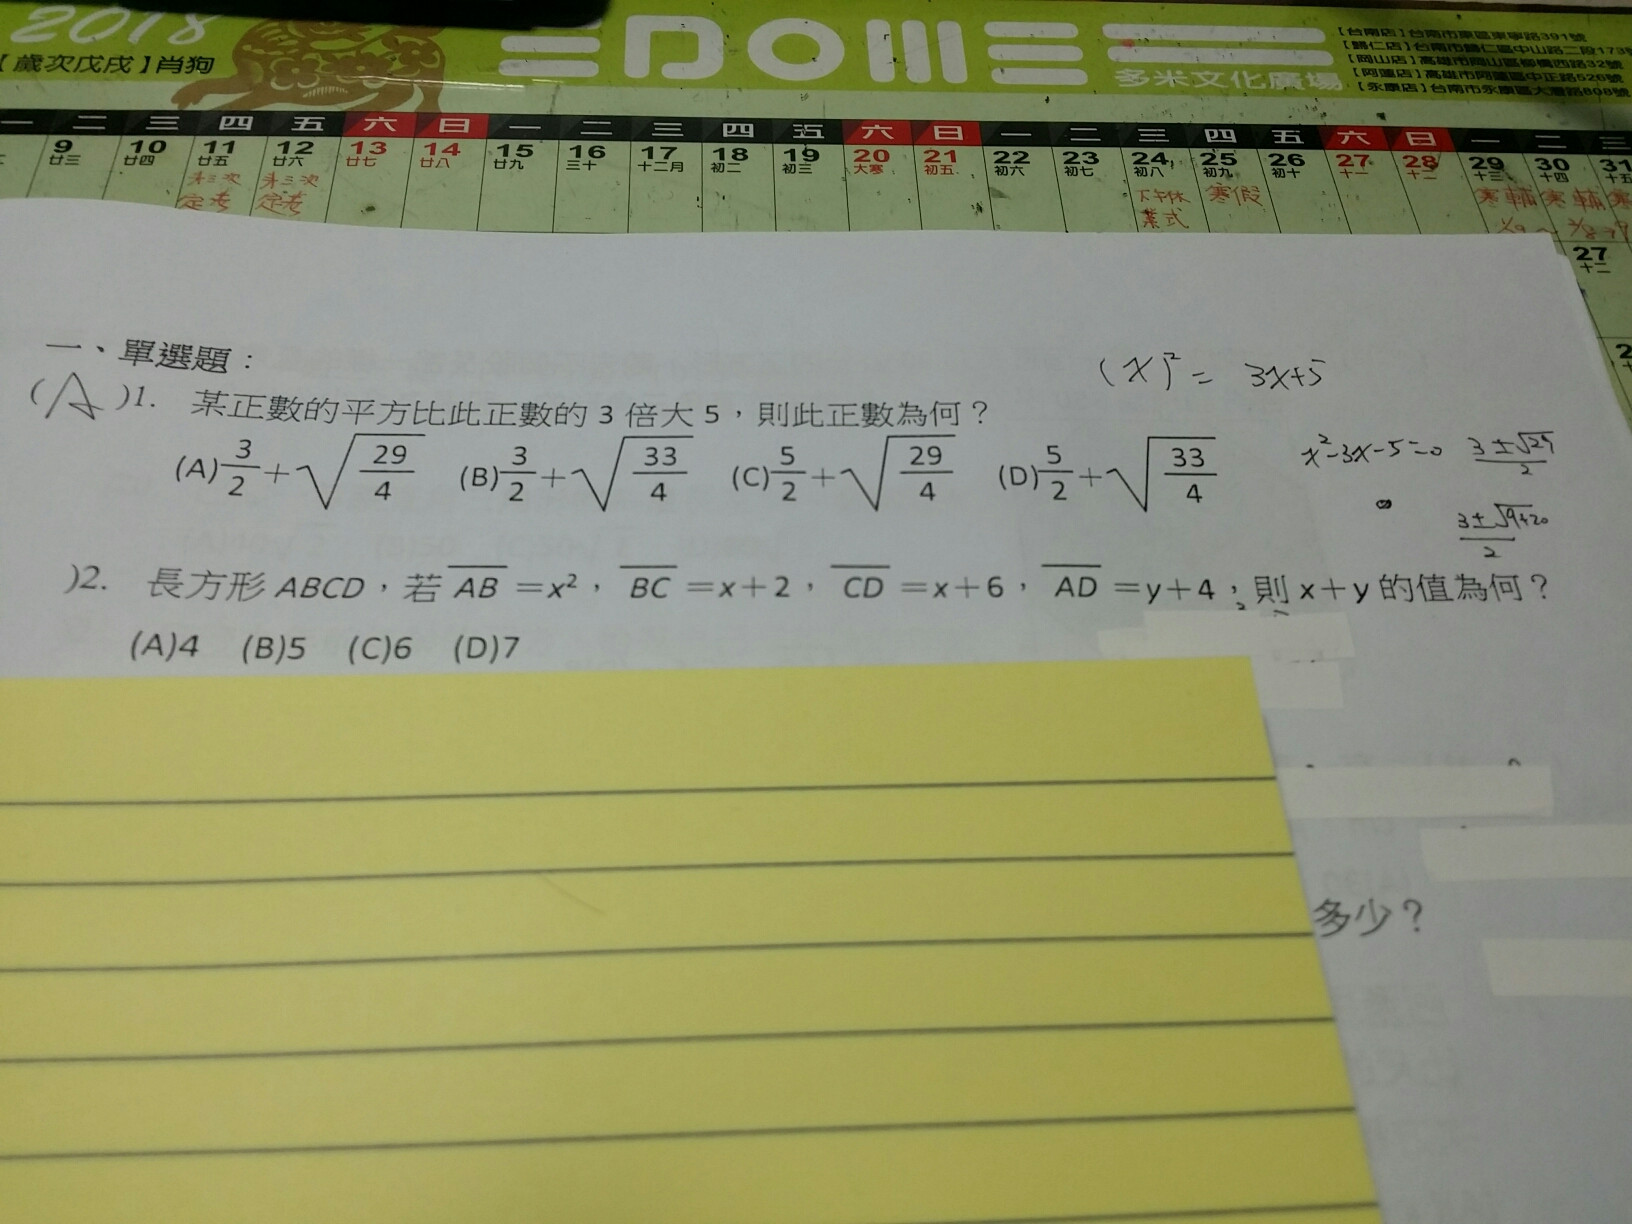 2018
【歲次戊戌】肖狗
DOME
多米文化廣場
【台南店】台南市東區東寧路391號
【歸仁店】台南市歸仁區中山路二段173號
【岡山店】高雄市岡山區柳橋西路32號
【阿蓮店】高雄市阿蓮區中正路526號
【永康店】台南市永康區大灣路808號
一 二 三 四 五 六 日 一 二 三 四 五 六 日 一 二 三 四 五 六 日 一 二 三
9 10 11 12 13 14 15 16 17 18 19 20 21 22 23 24 25 26 27 28 29 30 31
廿三 廿四 廿五 廿六 廿七 廿八 廿九 三十 十二月 初二 初三 大寒 初五 初六 初七 初八 初九 初十 十一 十二 十三 十四 十五
第三次 第三次 下午休 寒假 寒輔 寒輔 寒
定考 定考 業式
27
十二
一、單選題：
(A)1. 某正數的平方比此正數的 3 倍大 5，則此正數為何？
(A) 3/2 + √(29/4) (B) 3/2 + √(33/4) (C) 5/2 + √(29/4) (D) 5/2 + √(33/4)
(x)² = 3x+5
x²-3x-5=0
(3±√29)/2
(3±√9+20)/2
)2. 長方形 ABCD，若 AB =x²，BC =x+2，CD =x+6，AD =y+4，則 x+y 的值為何？
(A)4 (B)5 (C)6 (D)7
多少？